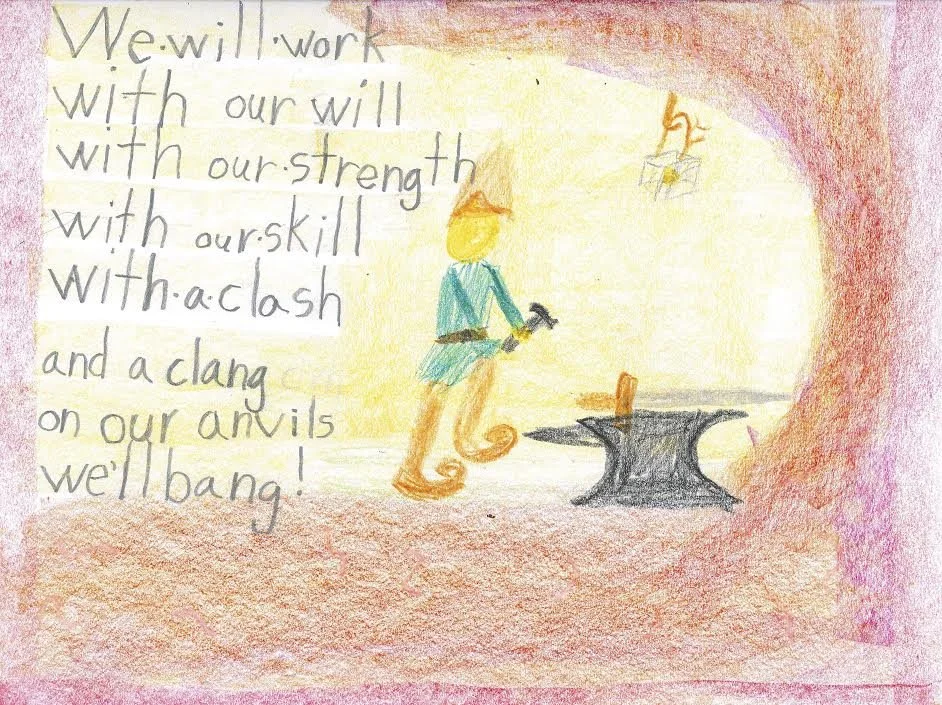 We·will·work
with our will
with our·strength
with our·skill
with·a·clash
and a clang
on our anvils
we'll bang!